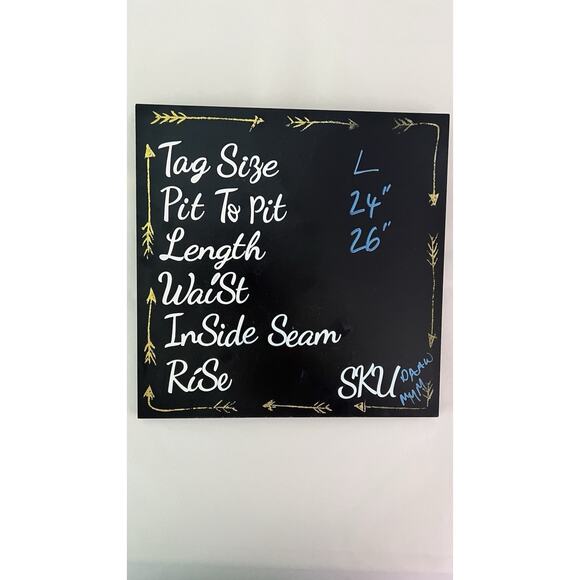 Tag Size L
Pit To Pit 24"
Length 26"
Waist
InSide Seam
RiSe
SKU